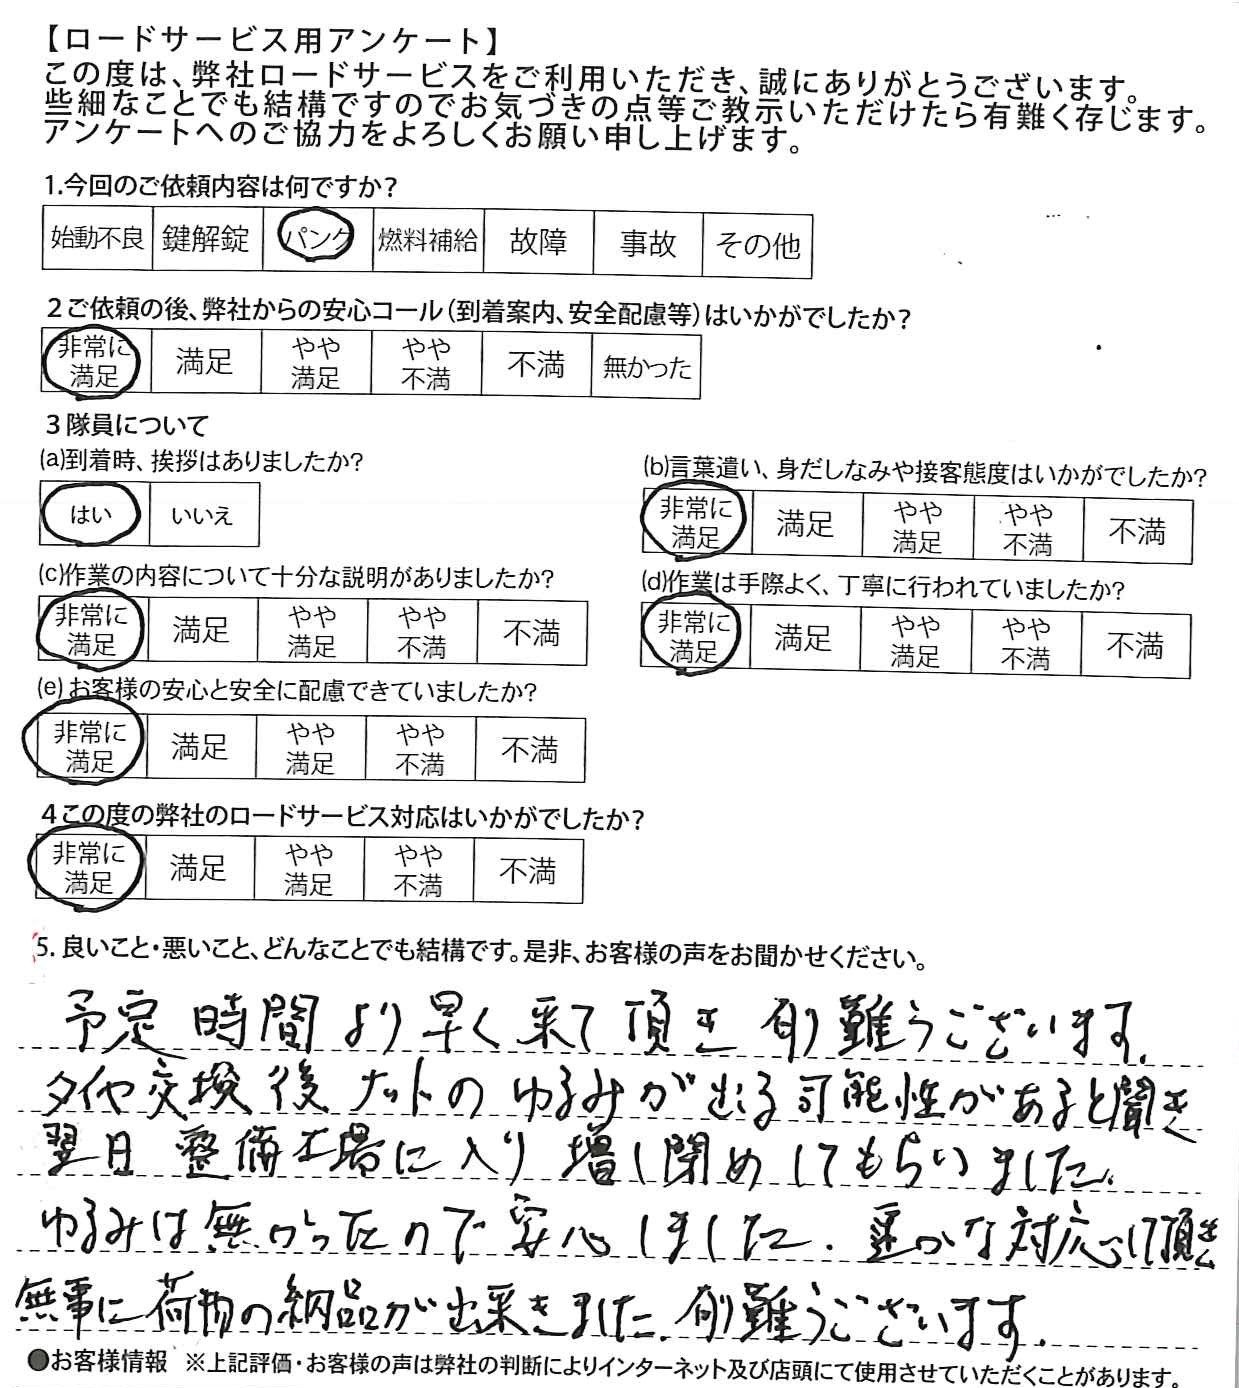 【ロードサービス用アンケート】
この度は、弊社ロードサービスをご利用いただき、誠にありがとうございます。
些細なことでも結構ですのでお気づきの点等ご教示いただけたら有難く存じます。
アンケートへのご協力をよろしくお願い申し上げます。
1.今回のご依頼内容は何ですか?
始動不良 鍵解錠 パンク 燃料補給 故障 事故 その他
2ご依頼の後、弊社からの安心コール(到着案内、安全配慮等)はいかがでしたか?
非常に満足 満足 やや満足 やや不満 不満 無かった
3隊員について
(a)到着時、挨拶はありましたか?
はい いいえ
(b)言葉遣い、身だしなみや接客態度はいかがでしたか?
非常に満足 満足 やや満足 やや不満 不満
(c)作業の内容について十分な説明がありましたか?
非常に満足 満足 やや満足 やや不満 不満
(d)作業は手際よく、丁寧に行われていましたか?
非常に満足 満足 やや満足 やや不満 不満
(e)お客様の安心と安全に配慮できていましたか?
非常に満足 満足 やや満足 やや不満 不満
4この度の弊社のロードサービス対応はいかがでしたか?
非常に満足 満足 やや満足 やや不満 不満
5.良いこと・悪いこと、どんなことでも結構です。是非、お客様の声をお聞かせください。
予定時間より早く来て頂き有難うございます。
タイヤ交換後ナットのゆるみが出る可能性があると聞き
翌日整備工場に入り増し閉めしてもらいました。
ゆるみは無かったので安心しました。 かな対応して頂き
無事に荷物の納品が出来きました。有難うございます。
●お客様情報 ※上記評価・お客様の声は弊社の判断によりインターネット及び店頭にて使用させていただくことがあります。